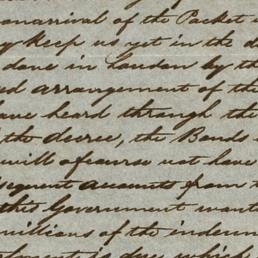 onarrival of the Packet
keep us yet in the
done in London by th
ed arrangement of the
ave heard through the
the decree, the Bonds
will of course not have
sequent accounts from
this Government want
millions of the indem
which